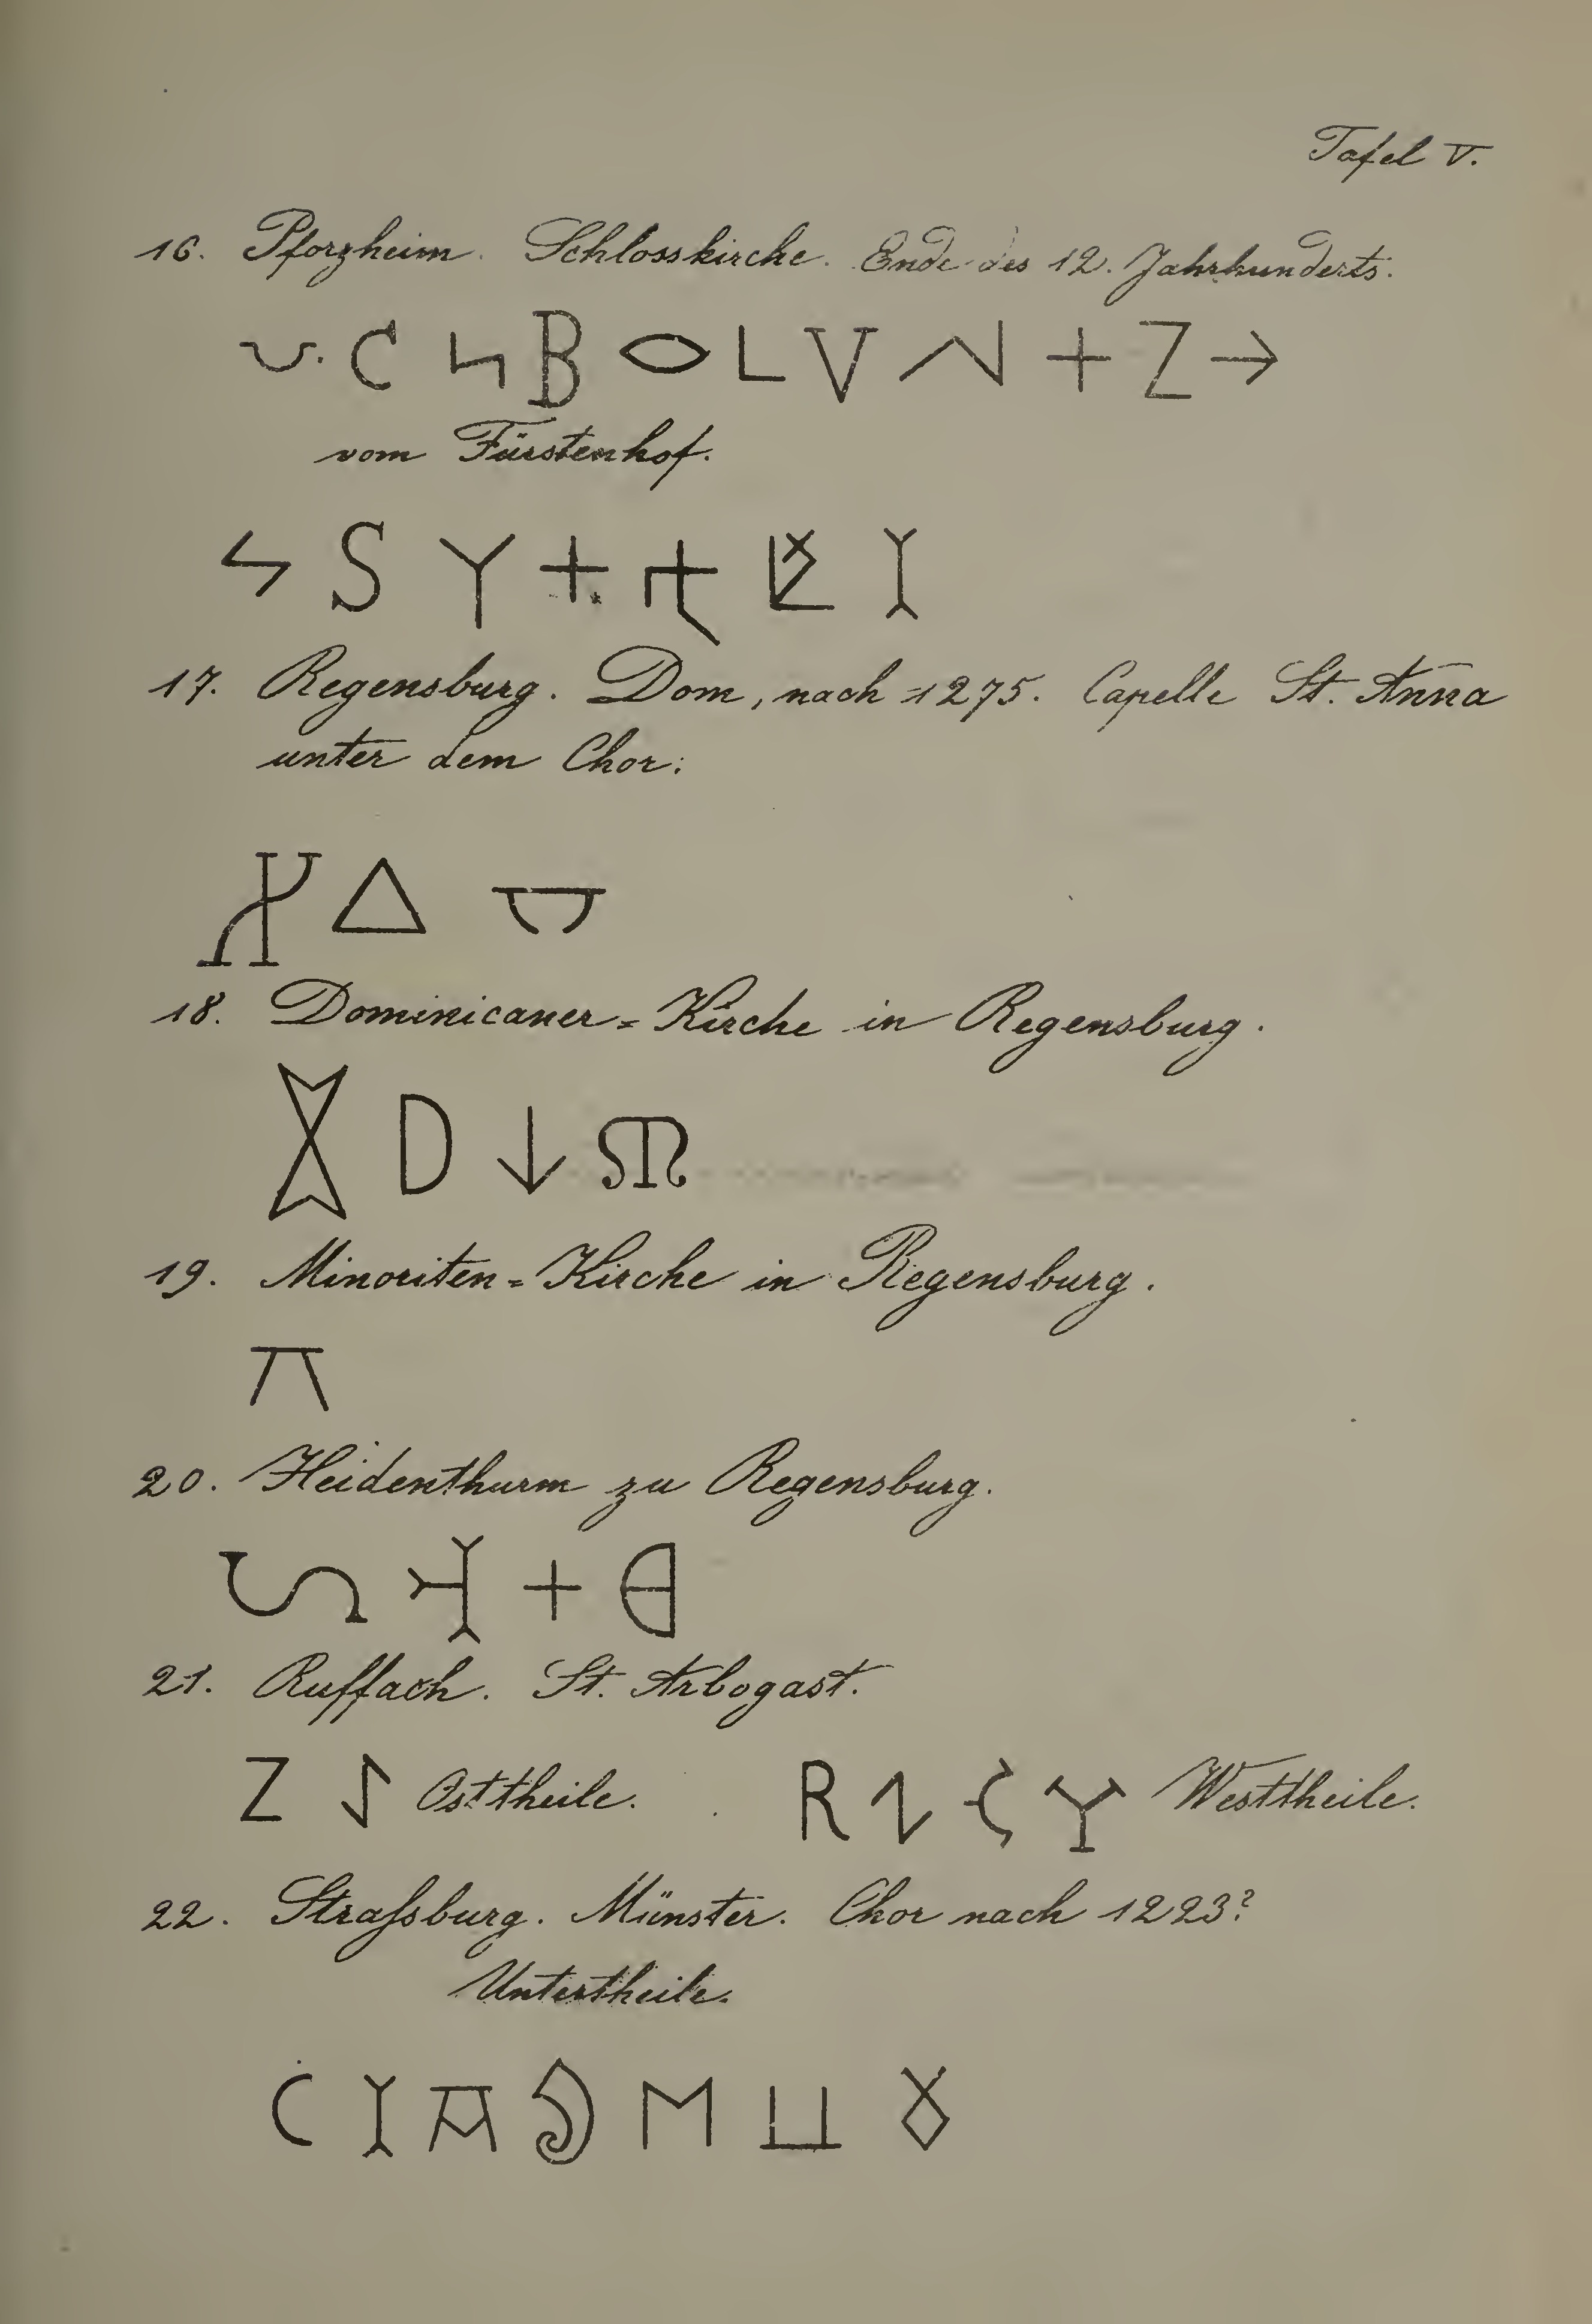 Tafel V.
16. Pforzheim. Schlosskirche. Ende des 12. Jahrhunderts.
C B L V + Z →
vom Fürstenhof.
S Y +
17. Regensburg. Dom, nach 1275. Capelle St. Anna
unter dem Chor:
△
18. Dominicaner=Kirche in Regensburg.
D ↓
19. Minoriten=Kirche in Regensburg.
20. Heidenthurm zu Regensburg.
+
21. Ruffach. St. Arbogast.
Z Osttheile. R Westtheile.
22. Straſsburg. Münster. Chor nach 1223?
Untertheile.
C M